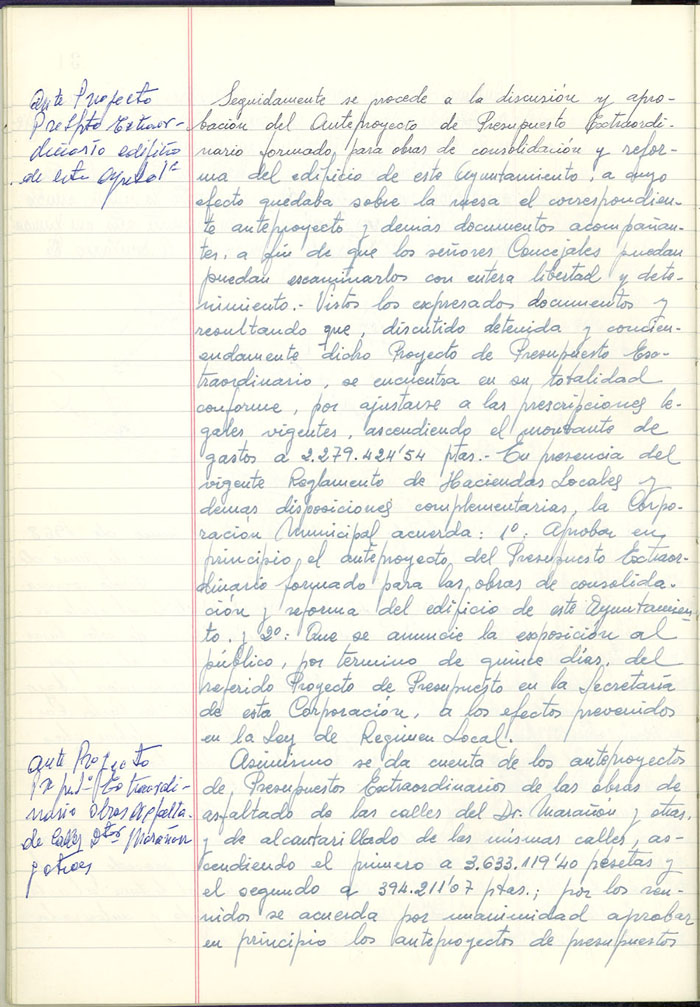 ante Proyecto
Presptº Extraor-
dinario edificio
de este
Seguidamente se procede a la discusión y apro-
bación del Anteproyecto de Presupuesto Extraordi-
nario formado, para obras de consolidación y refor-
ma del edificio de este Ayuntamiento, a cuyo
efecto quedaba sobre la mesa el correspondien-
te anteproyecto y demás documentos acompañan-
tes, a fin de que los señores Concejales puedan
puedan escaminarlos con entera libertad y dete-
nimiento.- Vistos los expresados documentos y
resultando que, discutido detenida y concien-
endamente dicho Proyecto de Presupuesto Esx-
traordinario, se encuentra en su totalidad
conforme, por ajustarse a las prescripciones le-
gales vigentes, ascendiendo el montante de
gastos a 2.279.424'54 ptas.- En presencia del
vigente Reglamento de Haciendas Locales y
demás disposiciones complementarias, la Corpo-
ración Municipal acuerda: 1º: Aprobar en
principio el anteproyecto del Presupuesto Extraor-
dinario formado para las obras de consolida-
ción y reforma del edificio de este Ayuntamien-
to. y 2º: Que se anuncie la exposición al
público, por término de quince días, del
referido Proyecto de Presupuesto en la Secretaría
de esta Corporación, a los efectos prevenidos
en la Ley de Regimen Local.
ante Proyecto
Extraordi-
nario obras asfalta.
de calles Dtor Marañon
y otras
Asimismo se da cuenta de los anteproyectos
de Presupuestos Extraordinarios de las obras de
asfaltado de las calles del Dr. Marañón y otras,
y de alcantarillado de las mismas calles, as-
cendiendo el primero a 3.633.119'40 pesetas y
el segundo a 394.211'07 ptas.; por los reu-
nidos se acuerda por unanimidad aprobar
en principio los anteproyectos de presupuestos